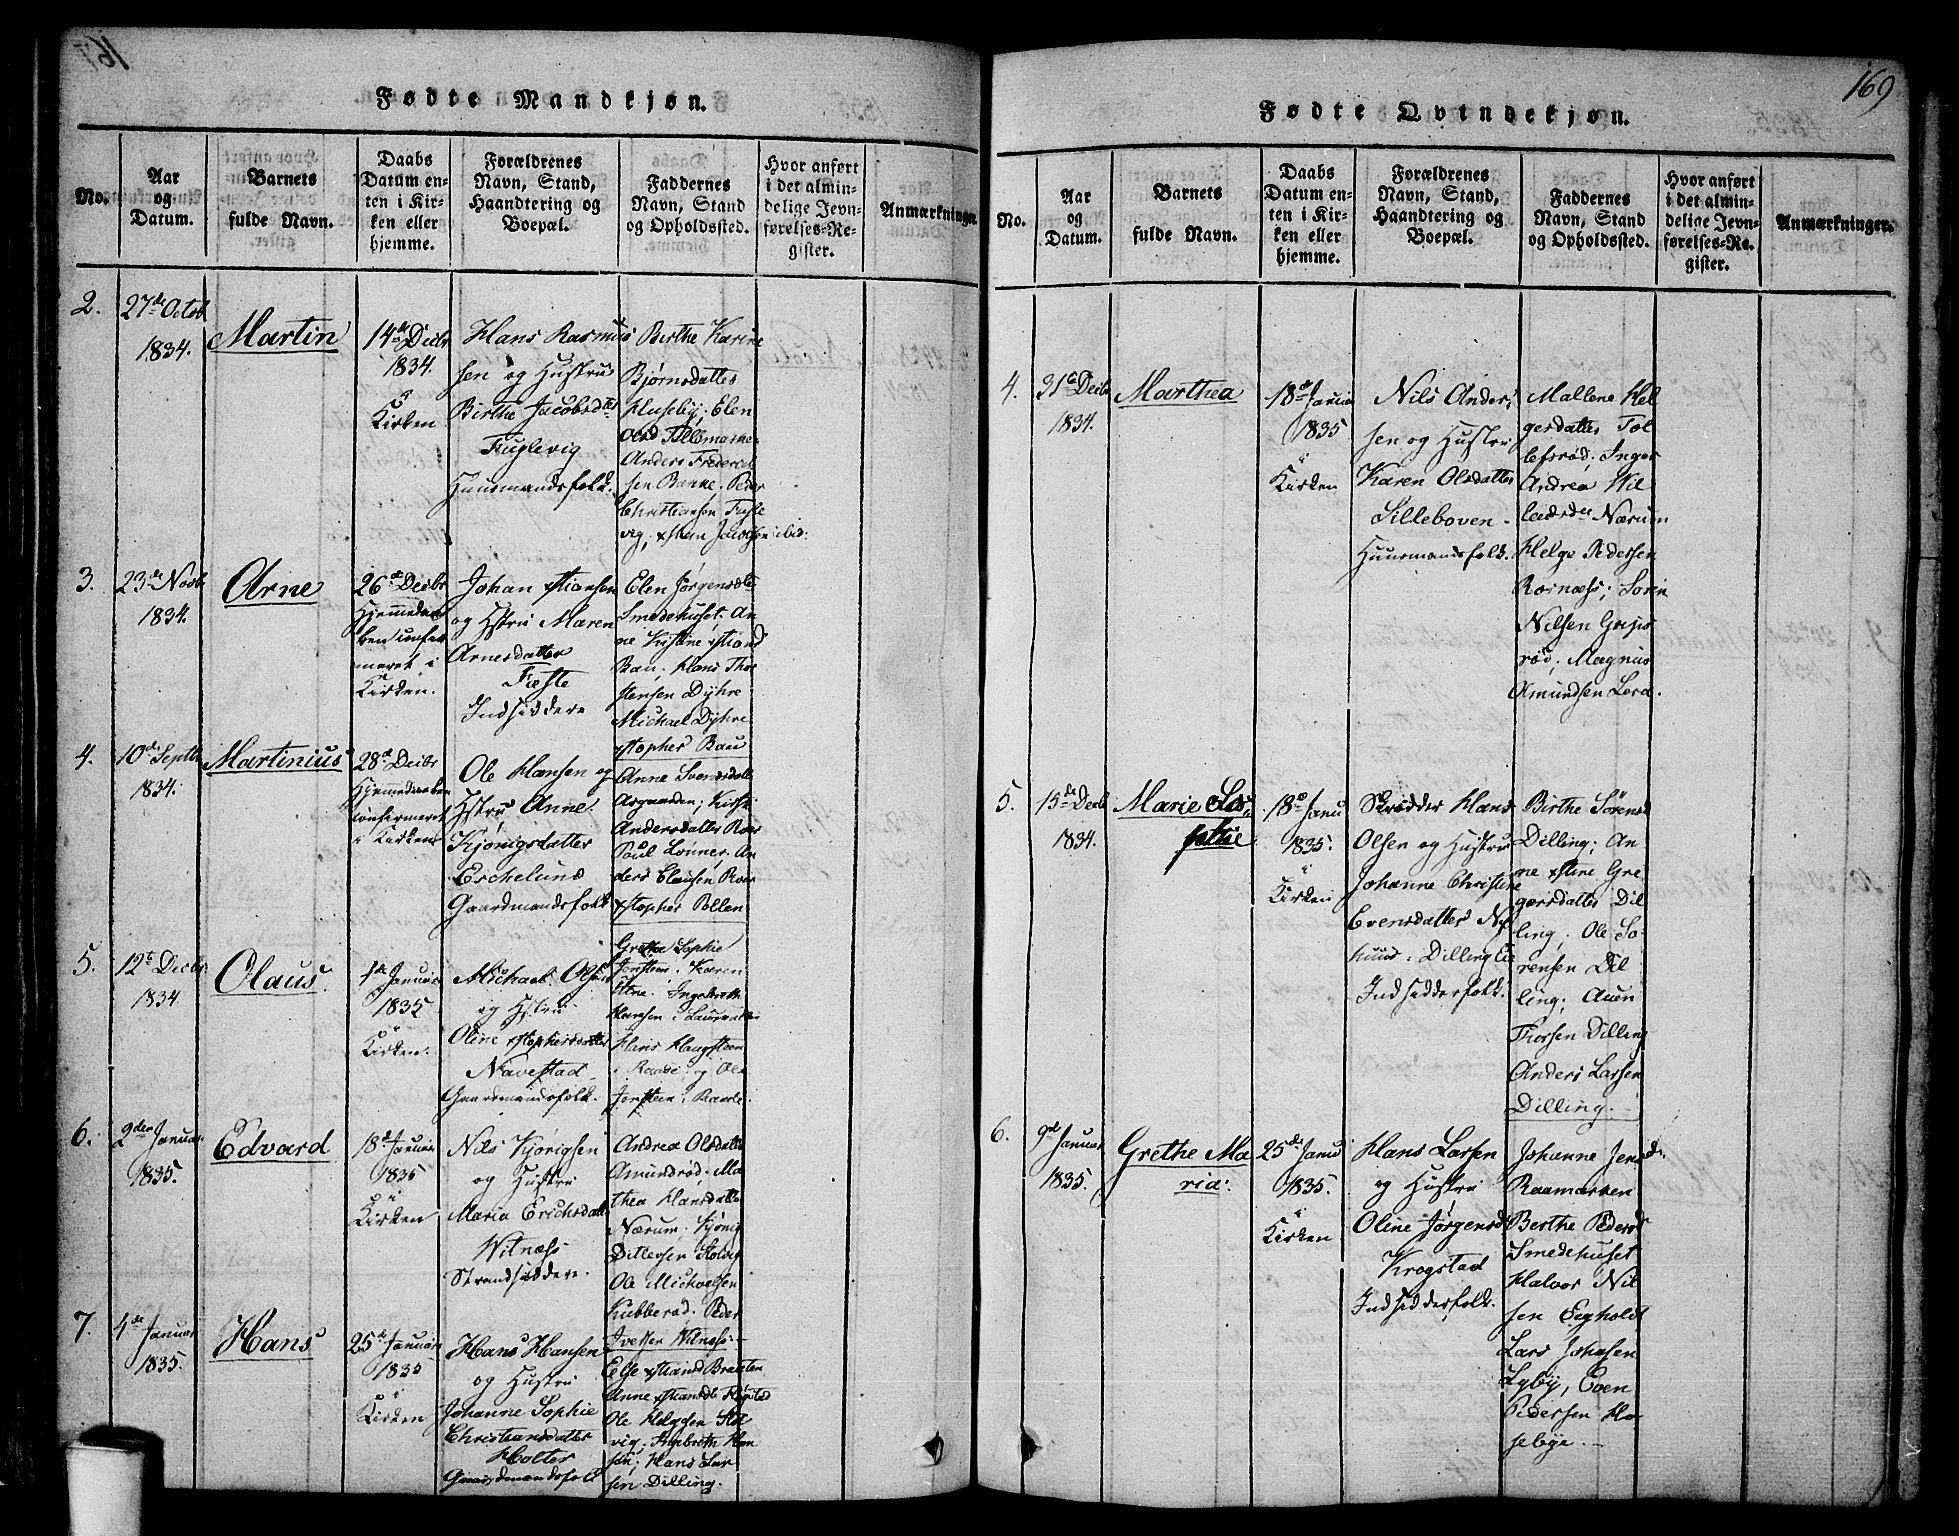 169
Fødte Mandkjøn.
No.
Aar
og
Datum.
Barnets
fulde Navn.
Daabs
Datum en-
ten i Kir-
ken eller
hjemme.
Forældrenes
Navn, Stand,
Haandtering og
Boepæl.
Faddernes
Navn, Stand
og Opholdssted.
Hvor anført
i det almin-
delige Jevn-
førelses-Re-
gister.
Anmærkninger.
2.
27de Octob
1834.
Martin
14de Decbr
1834.
i
Kirken
Hans Rasmus
sen og Hustru
Birthe Jacobsdtr
Fuglevig
Huusmandsfolk.
Birthe Karine
Bjørnsdatter
Huseby; Elen
Anders Frederek
sen Bakke. Peder
Christiansen Fugle
vig,
3.
23de Novb
1834.
Arne
26de Decbr
Hjemmedøbt
i
Kirken.
Johan xstiansen
og Hstru Maren
Arnesdatter
Fæste
Indsiddere
Elen Jørgensdtr
Smedehuset. An
ne Kristine xstiansd
Bau; Hans Thor
stensen Dyhre
Michael Dyhre
xstopher Bau
4.
10de Septbr
1834.
Martinius
28de Decbr
Hjemmedøbt
confirmeret
i Kirken
Ole Hansen og
Hstru Anne
Kjønigsdatter
Eschelund
Gaardmandsfolk
Anne Svensdatt
Asgaarden; Kirsti
Andersdatter Roer
Poul Lønner. An
ders Clausen Roer
xstopher Bollen
5.
12te Decbr
1834.
Olaus.
1de Januar
1835
i
Kirken.
Michael Olsen
og Hstru
Oline xstophersdatter
Navestad
Gaardmandsfolk.
Grethe Sophie
Jonsteen. Karen
Stene. Ingebreth
Hansen i
Hans Haugsteen
i Raade; og Ole
Jonsteen i Raade.
6.
2den Januar
1835.
Edvard
18de Januar
1835
i
Kirken
Nils Kjønigsen
og Hustru
Maria Erichsdatt
Vitnæss
Strandsiddere.
Andrea Olsdatt
Amundrød; Ma
thea Hansdatt
Nærum; Kjønig
Ditlevsen Stolvig
Ole Michaelsen
Kubberød. Peder
Iversen Vitnæss.
7.
4de Januar
1835.
Hans
25de Januar
1835
i
Kirken
Hans Hansen
og Hustru
Johanne Sophie
Christiansdatter
Holter
Gaardmandsfolk
Else xstiansd Braaten
Anne xstiansdtr
Ole Helgesen Stol
vig; Ingebreth Han
sen; Hans Lar
sen Dilling.
Fødte Qvindekjøn.
No.
Aar
og
Datum.
Barnets
fulde Navn.
Daabs
Datum en-
ten i Kir-
ken eller
hjemme.
Forældrenes
Navn, Stand,
Haandtering og
Boepæl.
Faddernes
Navn, Stand
og Opholdssted.
Hvor anført
i det almin-
delige Jevn-
førelses-Re-
gister.
Anmærkninger.
4.
31te Decbr
1834.
Marthea
18de Janua
1835
i
Kirken
Nils Ander,
sen og Hustru
Karen Olsdatter
Silleboven.
Huusmandsfolk.
Mallene Hel
gesdatter Tol
lefsrød; Inger
Andrea Hil
Nærum
Helge Pedersen
Rørnæss; Sören
Nilsen Grejs
rød; Magnus
Amundsen Lera.
5.
15de Decbr
1834.
Marie Jo,
sephie
18de Janu
1835.
i
Kirken
Skrædder Hans
Olsen og Hustru
Johanne Christine
Evensdatter Ny
huus. Dilling Eie
Indsidderfolk.
Birthe Sörensd
Dilling; An
ne xstine Gre
gersdatter Dil
ling, Ole Sö
rensen Dil
ling; Auen
Thorsen Dilling
Anders Larsen
Dilling.
6.
9de Januar
1835.
Grethe Ma
ria.
25de Janu
1835.
i
Kirken
Hans Larsen
og Hustru
Oline Jørgensd
Krogstad
Indsidderfolk.
Johanne Jensdr.
Raamarken
Berthe Pedersd
Smedehuset
Halvor Nil
sen Egholdt
Lars Johasen
Lyby, Even
Pedersen Hu
sebye.